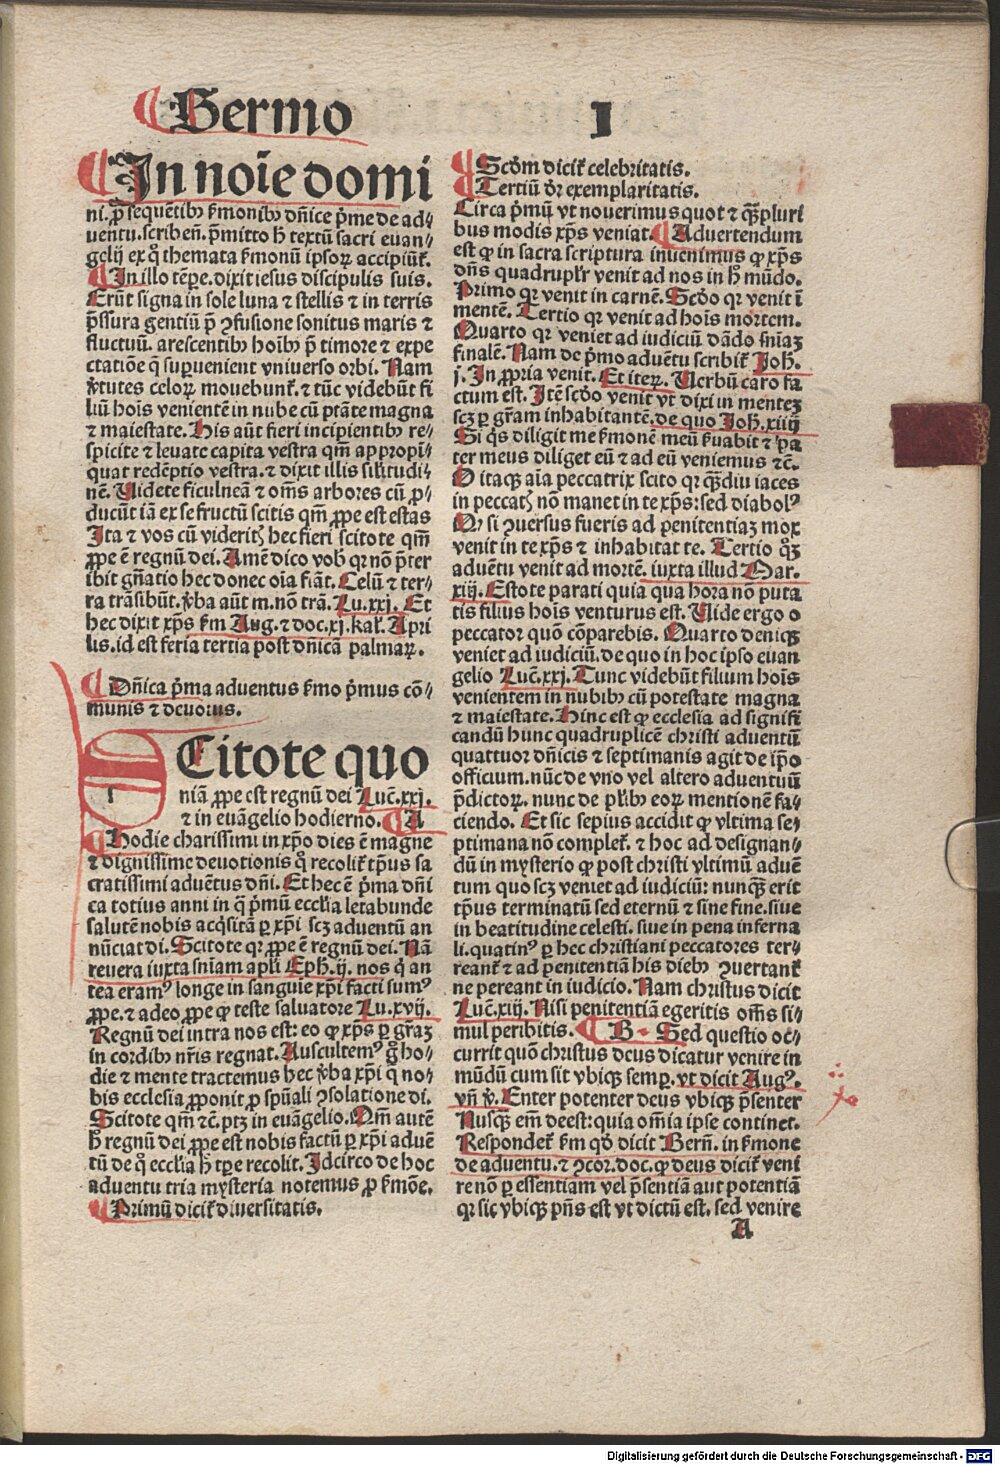 Sermo I
In noīe domi
ni. p̄sequētibꝰ ẜmonibꝰ dn̄ice p̄me de ad⸗
uentu. scribeñ. p̄mitto h̄ textū sacri euan⸗
gelij ex q̊ themata ẜmonū ipsoꝝ accipiūt᷑.
In illo tēpe. dixit iesus discipulis suis.
Erūt signa in sole luna ⁊ stellis ⁊ in terris
p̄ssura gentiū p̄ ꝯfusione sonitus maris ⁊
fluctuū. arescentibꝰ hoībꝰ p̄ timore ⁊ expe
ctatiōe q̄ suꝑuenient vniuerso orbi. Nam
v̓tutes celoꝝ mouebunt᷑. ⁊ tūc videbūt fi
liū hoīs venientē in nube cū ptāte magna
⁊ maiestate. His aūt fieri incipientibꝰ re⸗
spicite ⁊ leuate capita vestra qm̄ appropī⸗
quat redēptio vestra. ⁊ dixit illis sil̓itudi⸗
nē. Uidete ficulneā ⁊ om̄s arbores cū ꝓ⸗
ducūt iā ex se fructū scitis qm̄ ꝓpe est estas
Ita ⁊ vos cū videritꝭ hec fieri scitote qm̄
ꝓpe ē regnū dei. Amē dico vob̄ qꝛ nō p̄ter
ibit gn̄atio hec donec oīa fiāt. Celū ⁊ ter⸗
ra trāsibūt. v̓ba aūt m. nō trā. Lu. xxj. Et
hec dixit xp̄s ẜm Aug. ⁊ doc. xj. kal̓. Apri
lis. id est feria tertia post dn̄icā palmaꝝ.
Dn̄ica p̄ma aduentus ẜmo p̄mus cō⸗
munis ⁊ deuotus.
Scitote quo
niā ꝓpe est regnū dei Luc̄. xxj.
⁊ in euāgelio hodierno. A
Hodie charissimi in xp̄o dies ē magne
⁊ dignissime deuotionis q̊ recolit᷑ tp̄us sa
cratissimi aduētus dn̄i. Et hec ē p̄ma dn̄i
ca totius anni in q̄ p̄mū eccl̓ia letabunde
salutē nobis acq̇sitā ꝑ xp̄i scꝫ aduentū an
nūciat di. Scitote qꝛ ꝓpe ē regnū dei. Nā
reuera iuxta sn̄iam apl̓i Eph. ij. nos q̇ an
tea eramꝰ longe in sanguie xp̄i facti sumꝰ
ꝓpe. ⁊ adeo ꝓpe ꝙ teste saluatore Lu. xvij.
Regnū dei intra nos est: eo ꝙ xp̄s ꝑ gr̄aꝫ
in cordibꝰ nr̄is regnat. Auscultemꝰ g̊ ho⸗
die ⁊ mente tractemus hec v̓ba xp̄i q̄ no⸗
bis ecclesia ꝓponit ꝓ spūali ꝯsolatione di.
Scitote qm̄ ⁊c̄. ptꝫ in euāgelio. Qm̄ autē
h̄ regnū dei ꝓpe est nobis factū ꝑ xp̄i aduē
tū de q̊ eccl̓ia h̄ tp̄e recolit. Idcirco de hoc
aduentu tria mysteria notemus ꝓ ẜmōe.
Primū dicit᷑ diuersitatis.
Scd̄m dicit᷑ celebritatis.
Tertiū dr̄ exemplaritatis.
Circa p̄mū vt nouerimus quot ⁊ qꝫ̄ pluri
bus modis xp̄s veniat. Aduertendum
est ꝙ in sacra scriptura inuenimus ꝙ xp̄s
dn̄s quadrupl̓r venit ad nos in h̄ mūdo.
Primo qꝛ venit in carnē. Scd̄o qꝛ venit ī
mentē. Tertio qꝛ venit ad hoīs mortem.
Quarto qꝛ veniet ad iudiciū dādo sn̄iaꝫ
finalē. Nam de p̄mo aduētu scribit᷑ Joh̄.
j. In ꝓpria venit. Et iteꝝ. Uerbū caro fa
ctum est. Itē scd̄o venit vt dixi in menteꝫ
scꝫ ꝑ gr̄am inhabitantē. de quo Joh̄. xiiij
Si q̇s diligit me ẜmonē meū ẜuabit ⁊ pa
ter meus diliget eū ⁊ ad eū veniemus ⁊c̄.
O itaqꝫ aīa peccatrix scito qꝛ qꝫ̄diu iaces
in peccatꝭ nō manet in te xp̄s: sed diabolꝰ
Qꝛ si ꝯuersus fueris ad penitentiaꝫ mox
venit in te xp̄s ⁊ inhabitat te. Tertio q̊ꝫ
aduētu venit ad mortē. iuxta illud Mar.
xiij. Estote parati quia qua hora nō puta
tis filius hoīs venturus est. Uide ergo o
peccator quō cōparebis. Quarto deniqꝫ
veniet ad iudiciū. de quo in hoc ipso euan
gelio Luc̄. xxj. Tunc videbūt filium hoīs
venientem in nubibꝰ cū potestate magna
⁊ maiestate. Hinc est ꝙ ecclesia ad signifi
candū hunc quadruplicē christi aduentū
quattuor dn̄icis ⁊ septimanis agit de ip̄o
officium. nūc de vno vel altero aduentuū
p̄dictoꝝ. nunc de pl̓ibꝰ eoꝝ mentionē fa⸗
ciendo. Et sic sepius accidit ꝙ vltima se⸗
ptimana nō complet᷑. ⁊ hoc ad designan⸗
dū in mysterio ꝙ post christi vltimū aduē
tum quo scꝫ veniet ad iudiciū: nunqꝫ̄ erit
tp̄us terminatū sed eternū ⁊ sine fine. siue
in beatitudine celesti. siue in pena inferna
li. quatinꝰ ꝑ hec christiani peccatores ter⸗
reant᷑ ⁊ ad penitentiā his diebꝰ ꝯuertant᷑
ne pereant in iudicio. Nam christus dicit
Luc̄. xiij. Nisi penitentiā egeritis om̄s si⸗
mul peribitis. B Sed questio oc⸗
currit quō christus deus dicatur venire in
mūdū cum sit vbiqꝫ semꝑ. vt dicit Augꝰ.
vn̄ v̓. Enter potenter deus vbiqꝫ p̄senter
Nusqꝫ̄ em̄ deest: quia om̄ia ipse continet.
Respondet᷑ ẜm qd̄ dicit Bern̄. in ẜmone
de aduentu. ⁊ ꝯcor. doc. ꝙ deus dicit᷑ veni
re nō ꝑ essentiam vel p̄sentiā aut potentiā
qꝛ sic vbiqꝫ pn̄s est vt dictū est. sed venire
A
Digitalisierung gefördert durch die Deutsche Forschungsgemeinschaft - DFG